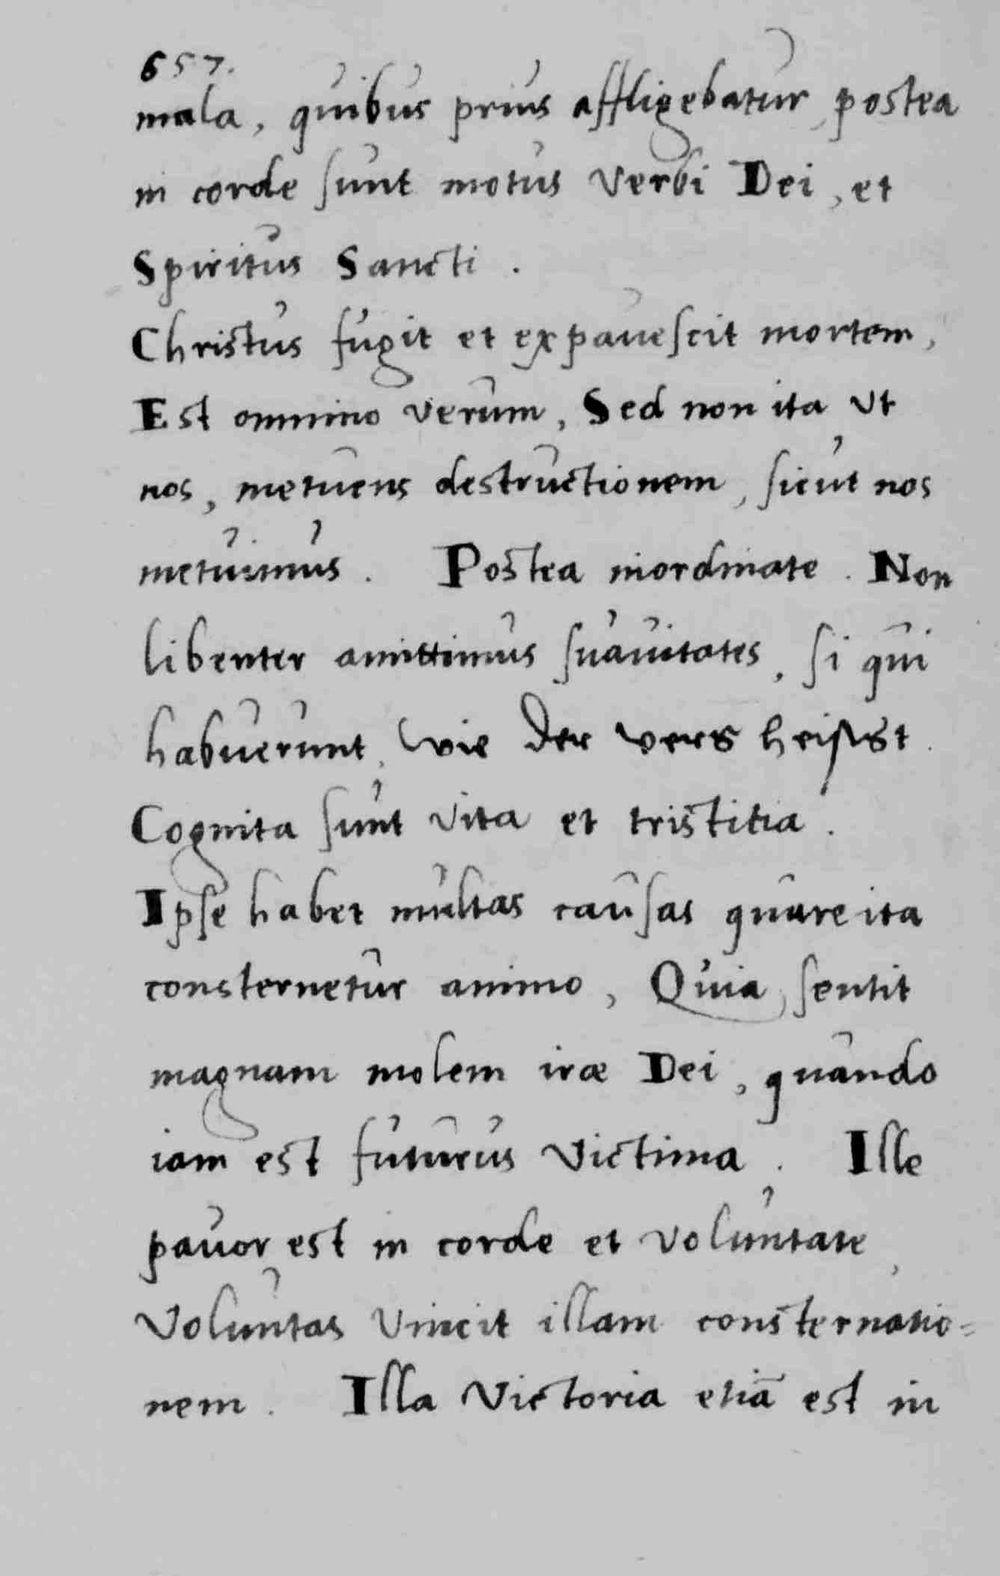 657.
mala, quibus prius affligebatur, postea
in corde sunt motus verbi Dei, et
Spiritus Sancti.
Christus fugit et expauescit mortem,
Est omnino verum, Sed non ita ut
nos, metuens destructionem, sicut nos
metuimus. Postea inordinate. Non
libenter amittimus suauitates, si qui
habuerunt, wie der vers heisst.
Cognita sunt vita et tristitia.
Ipse habet multas causas quare ita
consternetur animo, Quia sentit
magnam molem iræ Dei, quando
iam est futurus victima. Ille
pauor est in corde et voluntate,
Voluntas vincit illam consternatio=
nem. Illa victoria etiā est in